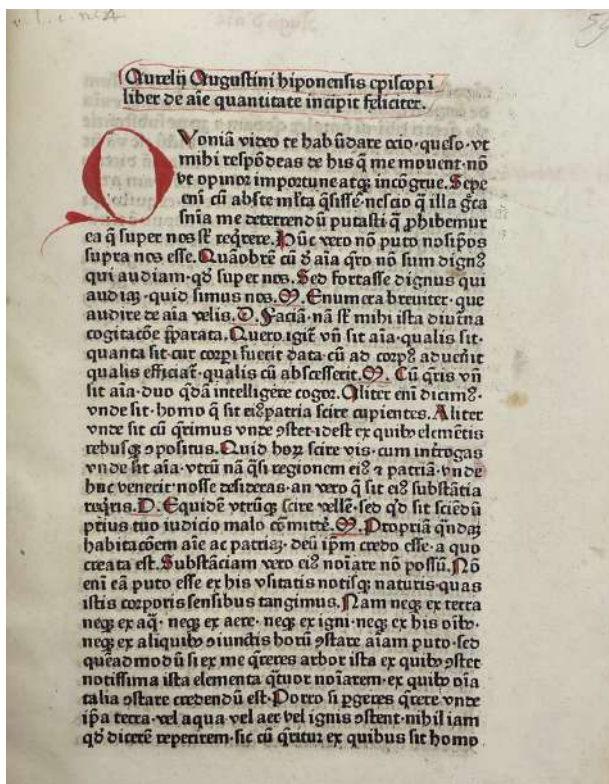 Aurelij Augustini hiponensis episcopi
liber de aīe quantitate incipit feliciter.
QVoniā video te habūdare ocio·queso·vt
mihi respōdeas de his q̄ me mouent·nō
vt opinor importune atqꝫ incōgrue. Sepe
enī cū abs te ml̄ta q̄sissē·nescio q̄ illa gͨca
snīa me deterrendū putasti·q̄ ꝓhibemur
ea q̄ super nos sūt req̄rere. Hūc vero nō puto nosip̄os
supra nos esse. Quāobrē cū ð aīa q̄ro nō sum dignꝰ
qui audiam·qð super nos. Sed fortasse dignus qui
audiaꝫ·quid simus nos. M. Enumera breuiter·que
audire de aīa velis. D. Faciā. nā st̄ mihi ista diutīna
cogitacōe p̄parata. Quero igit̄ vn̄ sit aīa·qualis sit·
quanta sit·cur corpi fuerit data·cū ad corpꝰ aduen̄it
qualis efficiat̄·qualis cū abscesserit. M. Cū q̄ris vn̄
sit aīa·duo q̄dā intelligēre cogor. Aliter enī dicimꝰ·
vnde sit·homo q̄ sit eiꝰ patria scire cupientes. Aliter
vnde sit cū q̄rimus vnde ꝯstet·idest ex quibꝰ elemētis
rebusqꝫ ꝯpositus. Quid horꝝ scire vis·cum int̄rogas
vnde sit aīa·vtrū nā q̄si regionem eiꝰ ⁊ patriā·vnde
huc venerit·nosse desideras·an vero q̄ sit eiꝰ substātia
req̄ris. D. Equidē vtrūqꝫ scire vellē·sed qð sit sciēdū
prius tuo iudicio malo cōmittē. M. Propriā q̄ndaꝫ
habitacōem aīe ac patriaꝫ·deū ip̄m credo esse·a quo
creata est. Substāciam vero eiꝰ noīare nō possū. Nō
enī eā puto esse ex his vsitatis notisqꝫ naturis·quas
istis corporis sensibus tangimus. Nam neqꝫ ex terra
neqꝫ ex aq̄· neqꝫ ex aere· neqꝫ ex igni·neqꝫ ex his oībꝰ·
neqꝫ ex aliquibꝰ ꝯiunctis horū ꝯstare aīam puto·sed
queadmodū si ex me q̄reres arbor ista ex quibꝰ ꝯstet
notissima ista elementa q̄tuor noīarem·ex quibꝰ oīa
talia ꝯstare credendū est. Porro si ꝑgeres q̄rere vnde
ip̄a terra·vel aqua vel aer vel ignis ꝯstent·nihil iam
qð dicerē reperirem·sic cū q̄ritur ex quibus sit homo